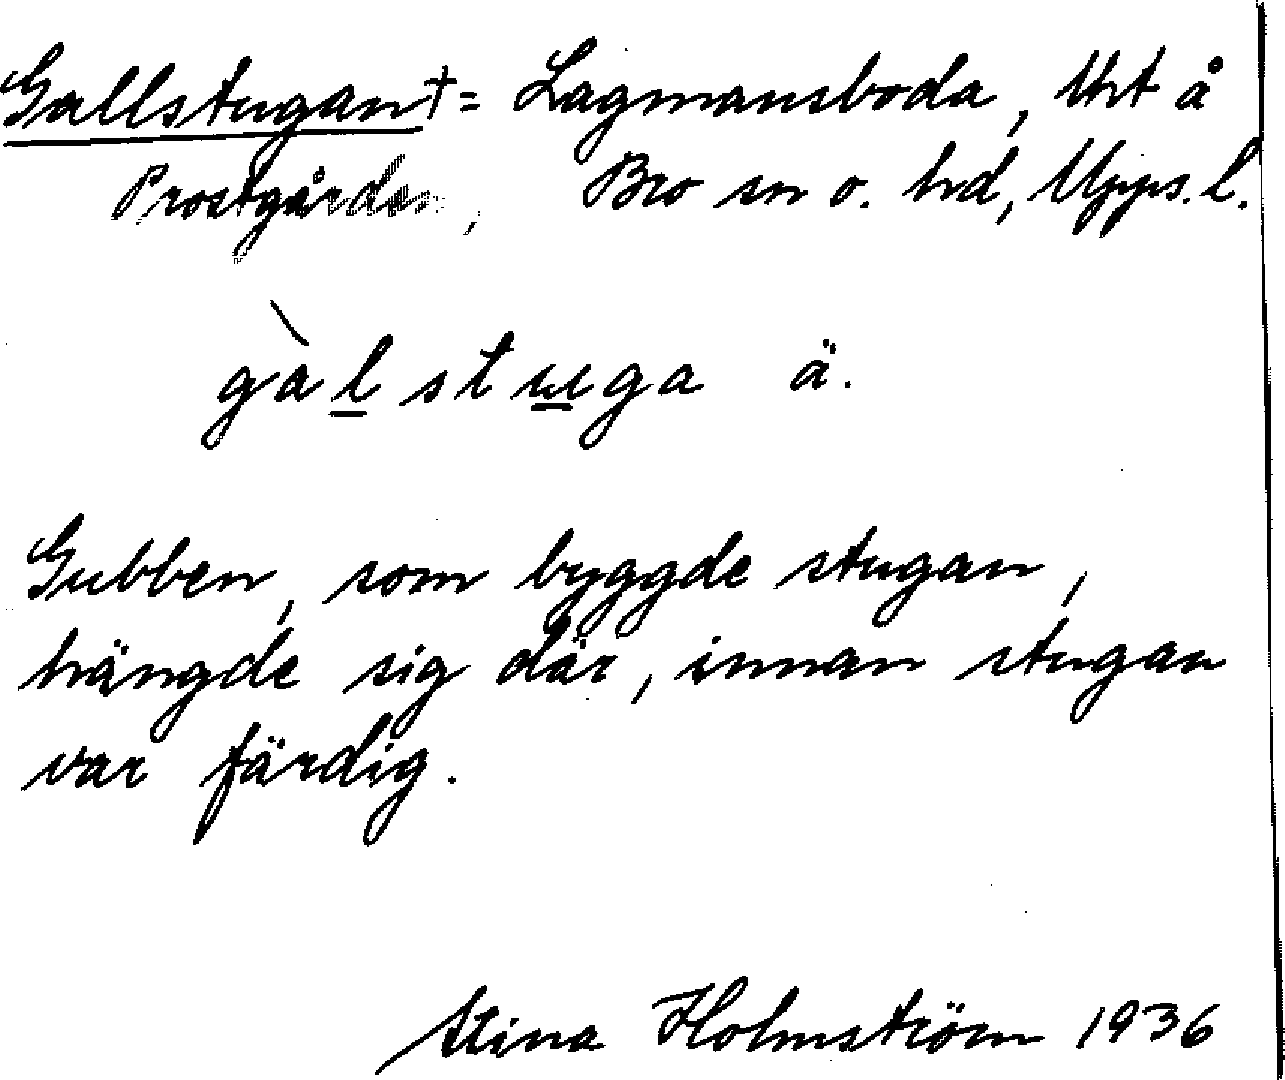 Gallstugan † = Lagmansboda, tht å
Prostgården, Bro sn o. hd, Upps. l.
gàlstuga ä.
Gubben, som byggde stugan,
hängde sig där, innan stugan
var färdig.
Stina Holmström 1936